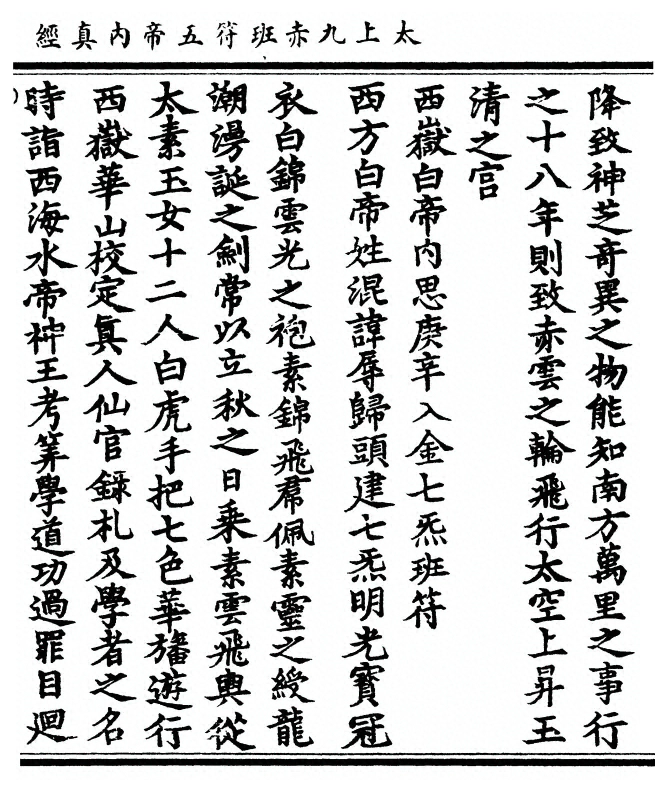 太上九赤班符五帝内真經
降致神芝奇異之物能知南方萬里之事行
之十八年則致赤雲之輪飛行太空上昇玉
清之宮
西嶽白帝内思庚辛入金七炁班符
西方白帝姓混諱辱歸頭建七炁明光寶冠
衣白錦雲光之袍素錦飛帬佩素靈之綬龍
潮澇誕之劍常以立秋之日乘素雲飛輿從
太素玉女十二人白虎手把七色華旛遊行
西嶽華山校定真人仙官錄札及學者之名
時詣西海水帝神王考筭學道功過罪目迴